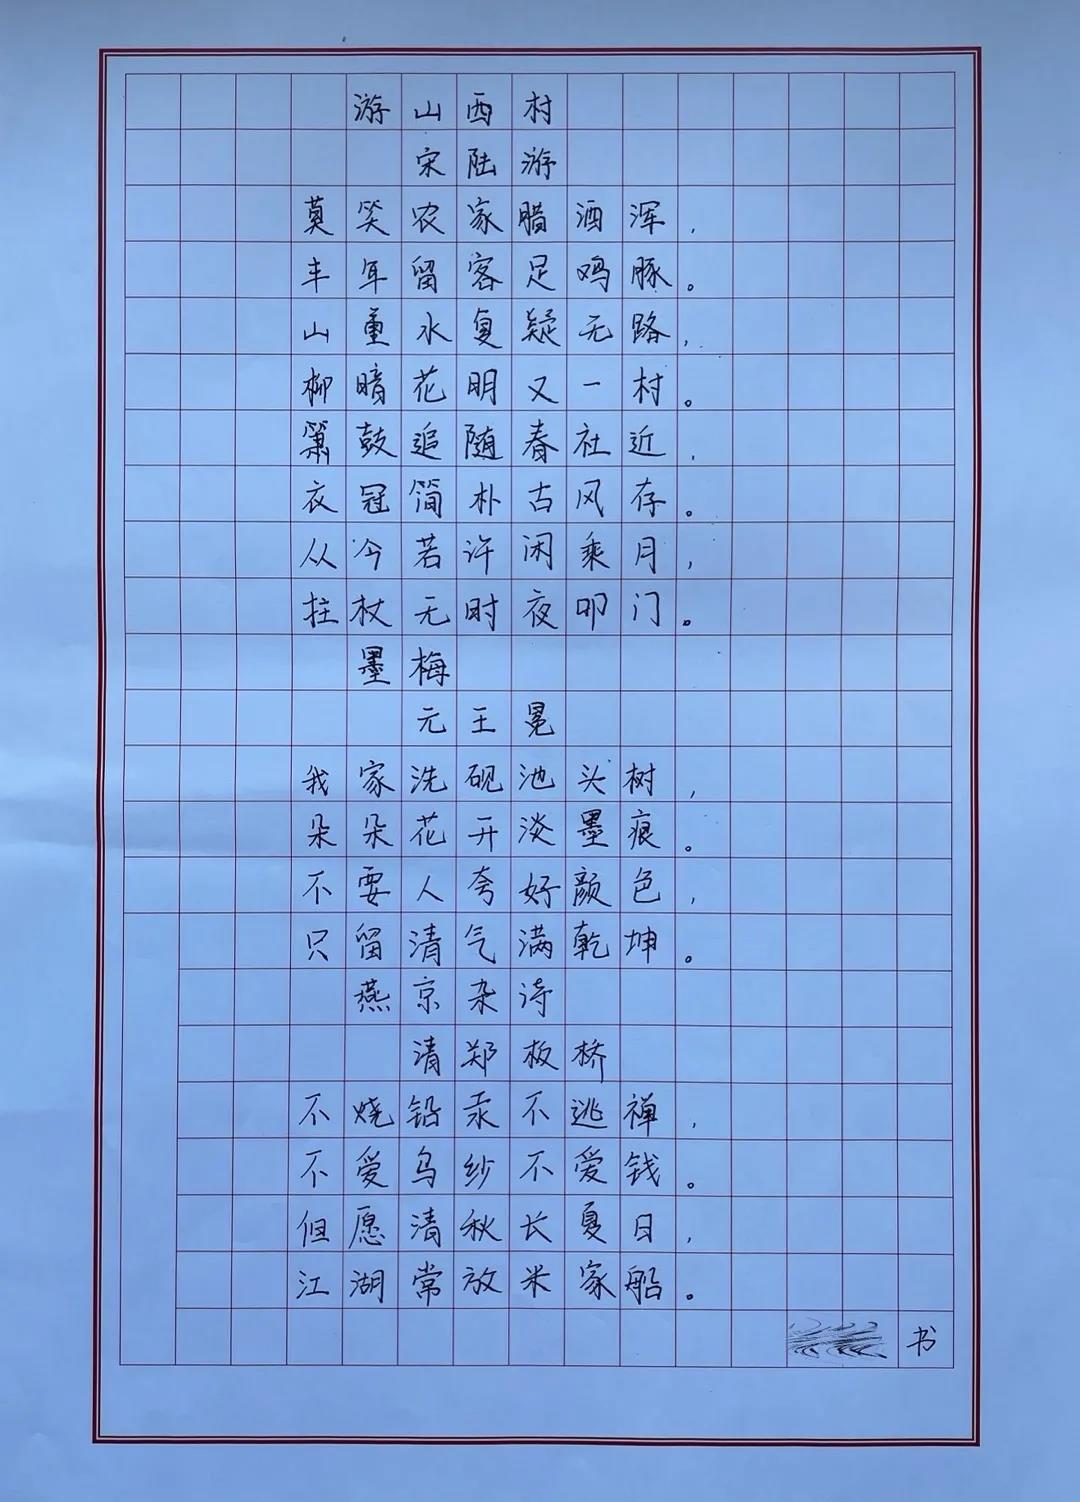 游山西村
宋陆游
莫笑农家腊酒浑，
丰年留客足鸡豚。
山重水复疑无路，
柳暗花明又一村。
箫鼓追随春社近，
衣冠简朴古风存。
从今若许闲乘月，
拄杖无时夜叩门。
墨梅
元王冕
我家洗砚池头树，
朵朵花开淡墨痕。
不要人夸好颜色，
只留清气满乾坤。
燕京杂诗
清郑板桥
不烧铅汞不逃禅，
不爱乌纱不爱钱。
但愿清秋长夏日，
江湖常放米家船。
书